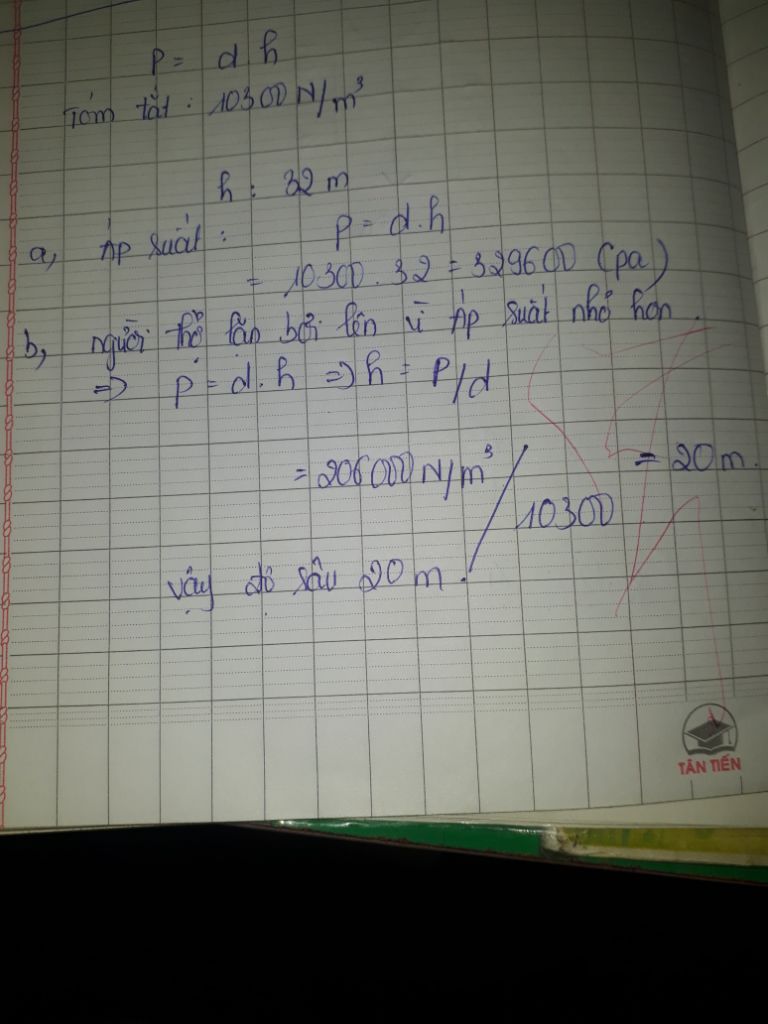 P = d h
Tóm tắt : 10300 N/m³
h : 32 m
a, Áp suất : P = d.h
= 10300 . 32 = 329600 (pa)
b, người thợ lặn bơi lên vì Áp suất nhỏ hơn.
=> P = d.h => h = P/d
= 206000 N/m³ / 10300 = 20 m.
vậy độ sâu 20 m.
TÂN TIẾN